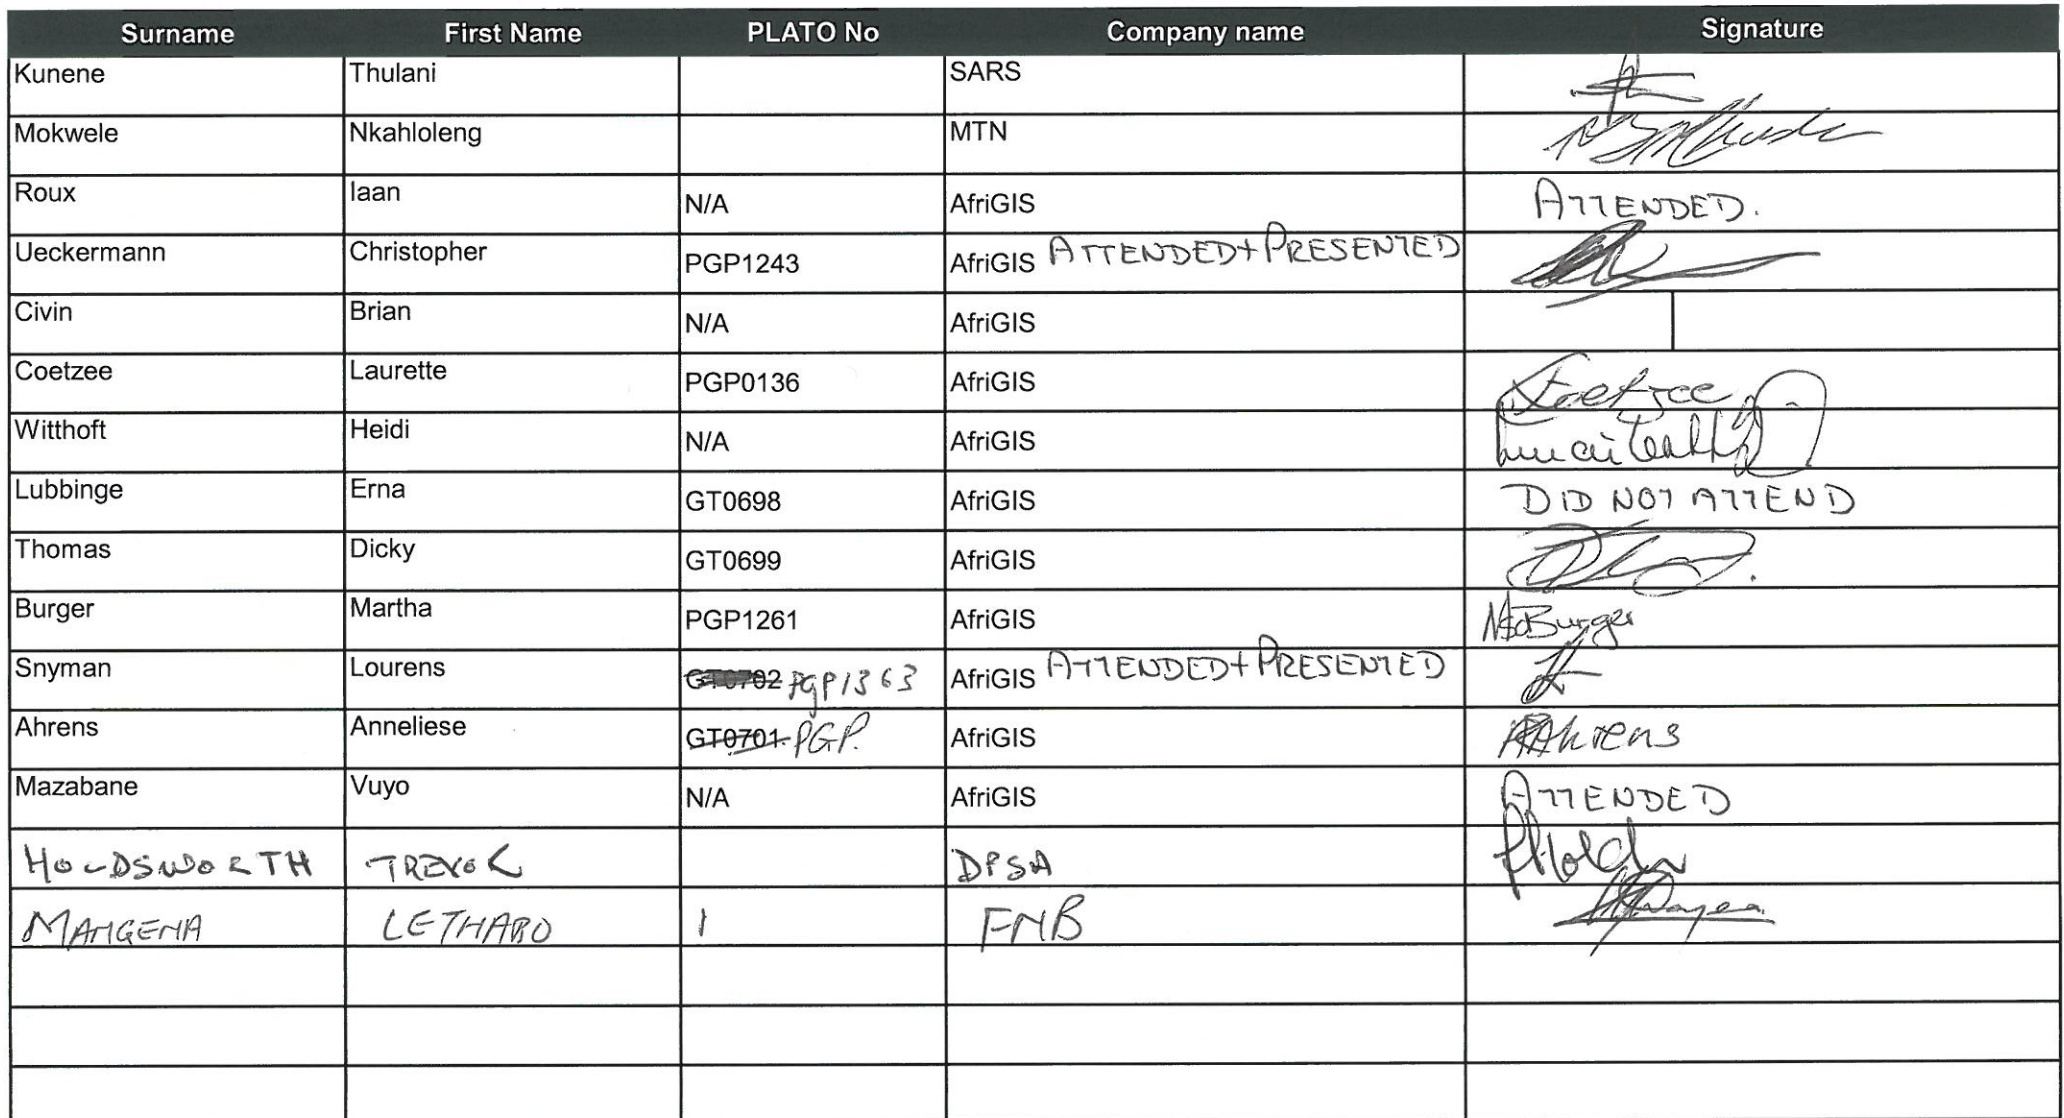 Surname First Name PLATO No Company name Signature
Kunene Thulani SARS
Mokwele Nkahloleng MTN
Roux Iaan N/A AfriGIS ATTENDED.
Ueckermann Christopher PGP1243 AfriGIS ATTENDED+PRESENTED
Civin Brian N/A AfriGIS
Coetzee Laurette PGP0136 AfriGIS Coetzee
Witthoft Heidi N/A AfriGIS
Lubbinge Erna GT0698 AfriGIS DID NOT ATTEND
Thomas Dicky GT0699 AfriGIS
Burger Martha PGP1261 AfriGIS Burger
Snyman Lourens GT0702 PGP1363 AfriGIS ATTENDED+PRESENTED
Ahrens Anneliese GT0701 PGP. AfriGIS Ahrens
Mazabane Vuyo N/A AfriGIS ATTENDED
HOLDSWORTH TREVOR DPSA
MANGENA LETHABO FNB